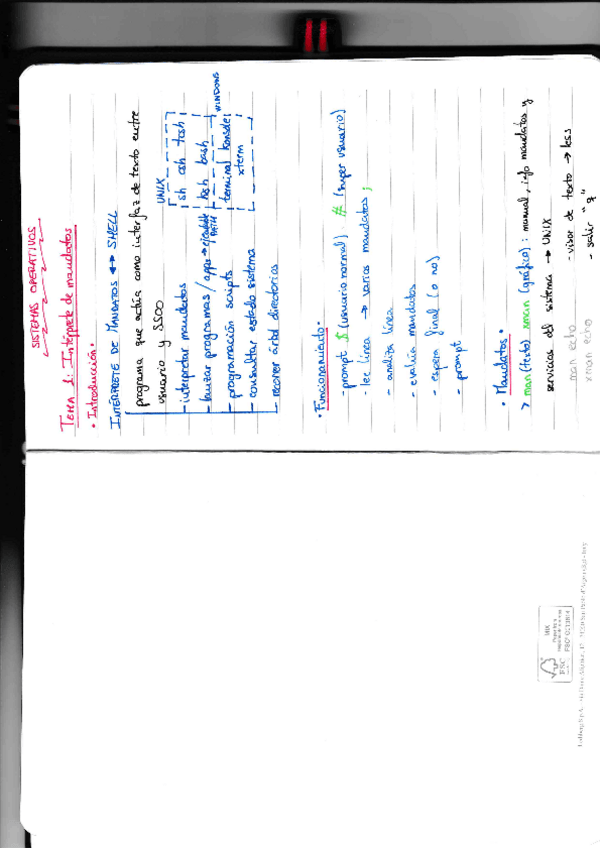 SISTEMAS OPERATIVOS
TEMA 1: Intérprete de mandatos
• Introducción •
INTÉRPRETE DE MANDATOS ↔ SHELL
programa que actúa como interfaz de texto entre
usuario y SSOO
- interpretar mandatos
- lanzar programas / apps →
PATH
- programación scripts
- consultar estado sistema
- recorrer árbol directorios
UNIX
sh csh tcsh
ksh bash
WINDOWS
terminal konsole
xterm
• Funcionamiento •
- prompt $ (usuario normal) # (super usuario)
- lee línea → varios mandatos ;
- analiza línea
- evalúa mandatos
- espera final (o no)
- prompt
• Mandatos •
> man (texto) xman (gráfico): manual, info mandatos y
servicios del sistema → UNIX
- visor de texto → less
- salir "q"
man echo
xman echo
MIX
FSC